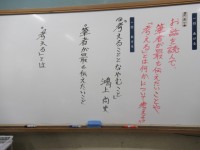 お話を読んで、
筆者が最も伝えたいことや、
「考える」とは何かについて考えよう
「考えることとなやむこと」
鴻上尚史
筆者が最も伝えたいこと
考えるとは